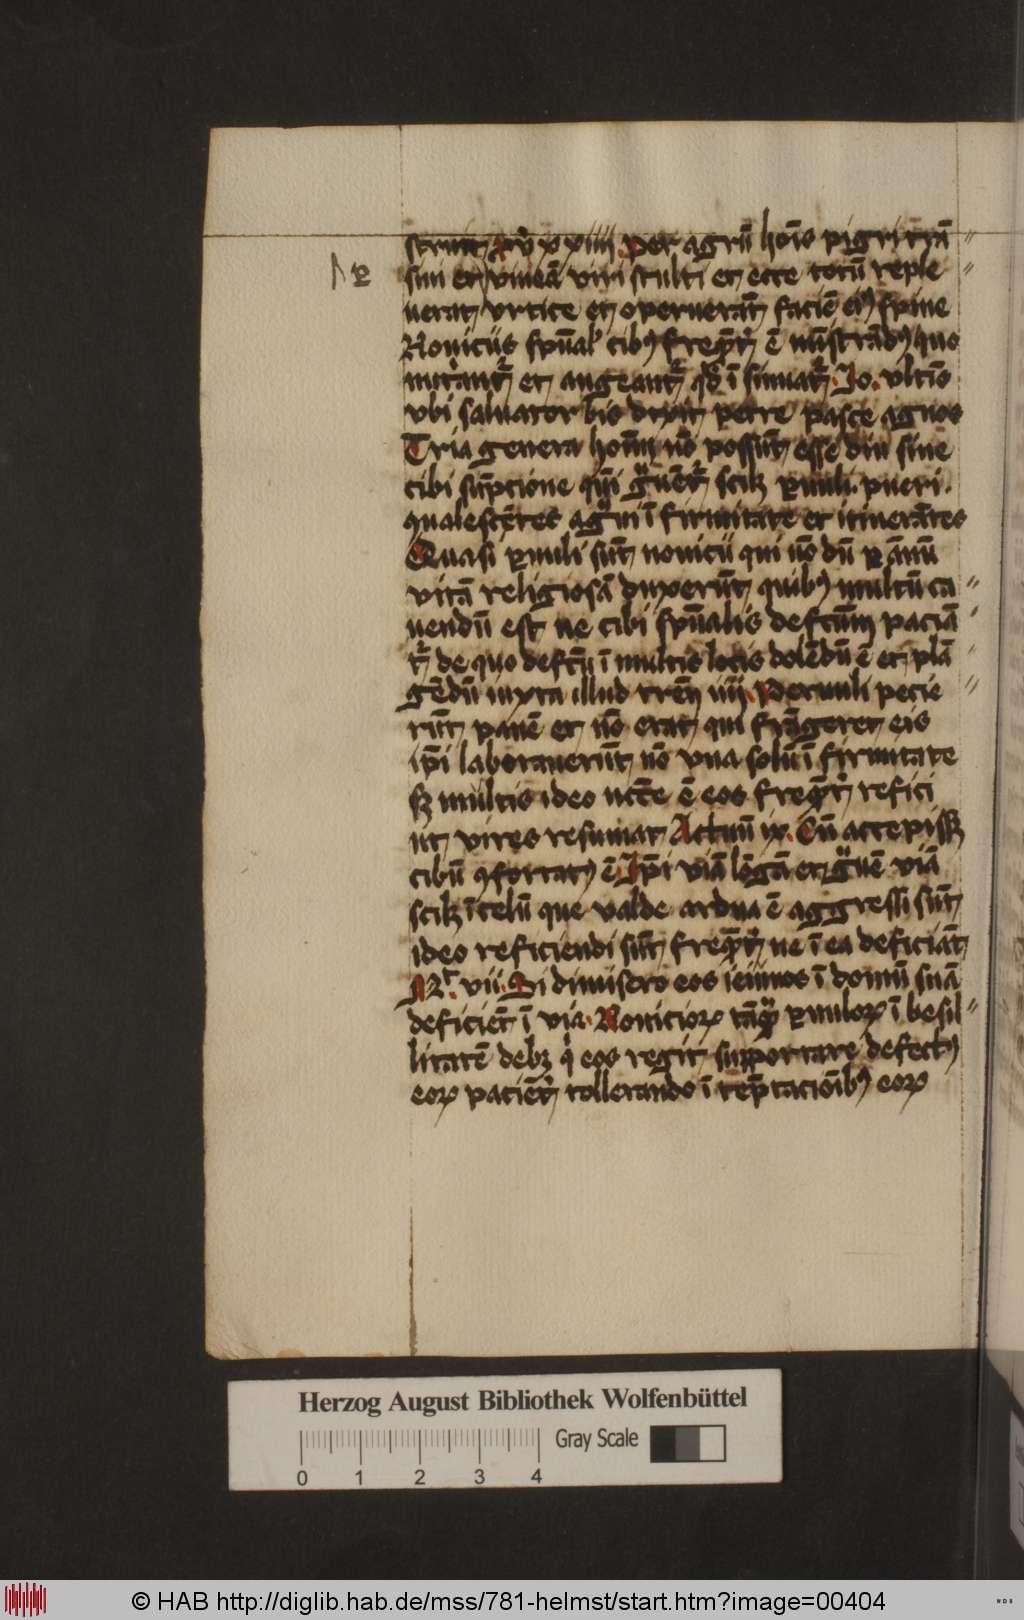 struitͭ prouͥ xxiiii. Per agrū hoīs pigri trā〃
siui et vineā viri stulti et ecce totū reple〃
N 2
uerāt vrtice et operuerāt faciē eiꝰ spine
Nouiciis spūalˢ cibꝰ freqn̄tͬ ē mīstrādꝰ quo
nutͥant̄ᷣ et augeant̄ᷣ qd̄ īsinuatᷣ Jo. vltīo
vbi saluator bis dixit petre pasce agnos
Tria genera hoīm nō possūt esse diu sine
cibi sūpcione quī gͣuētᷣ scilꝫ ꝑuuli. pueri.
qualescētes a gͣui īfirmitate et itinerātes
Quasi ꝑuuli sūt nouicii qui nō dū ꝑ annū
vitā religiosā duxerūt quibꝰ multū ca〃
uendū est ne cibi spūalis defectum paciā〃
tᷣ de quo defectu ī multis locis dolēdū ē et plā〃
gēdū iuxta illud treń iiij. Paruuli pecie〃
rūt panē et nō erat qui frāgeret eis
ip̄i laborauerūt nō vna solū īfirmitate
sꝫ multis ideo nece̅ ē eos freqn̄tͬ refici
ut vires resumāt Actuū ix. Cū accepissꝫ
cibū ꝯfortatꝰ ē Jp̄i viā lōgā et gͣuē viā
scilꝫ ī celū que valde ardua ē aggressi sūt
ideo reficiendi sūt freqn̄tͬ ne ī ea deficiāt
Mͬ. vii. Si dimisero eos ieiunos ī domū suā
deficiēt ī via. Nouicioꝝ tāqͣ ꝑuuloꝝ ībesil〃
litatē debꝫ qͥ eos regit supportare defectꝰ
eoꝝ paciētͬ tollerando ī tēptacioībꝰ eoꝝ
Herzog August Bibliothek Wolfenbüttel
0 1 2 3 4 Gray Scale
© HAB http://diglib.hab.de/mss/781-helmst/start.htm?image=00404